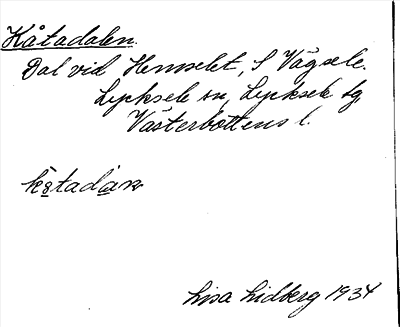 Kåtadalen
Dal vid Hemselet, S Vägsele.
Lycksele sn, Lycksele lg,
Västerbottens l.
kòtadàn
Lisa Lidberg 1934